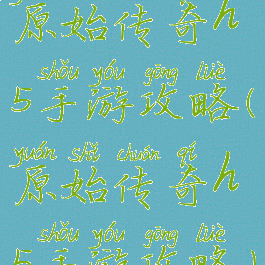 原始传奇h
shǒu yóu gōng lüè
5手游攻略(
yuán shǐ chuán qí
原始传奇h
shǒu yóu gōng lüè
5手游攻略)